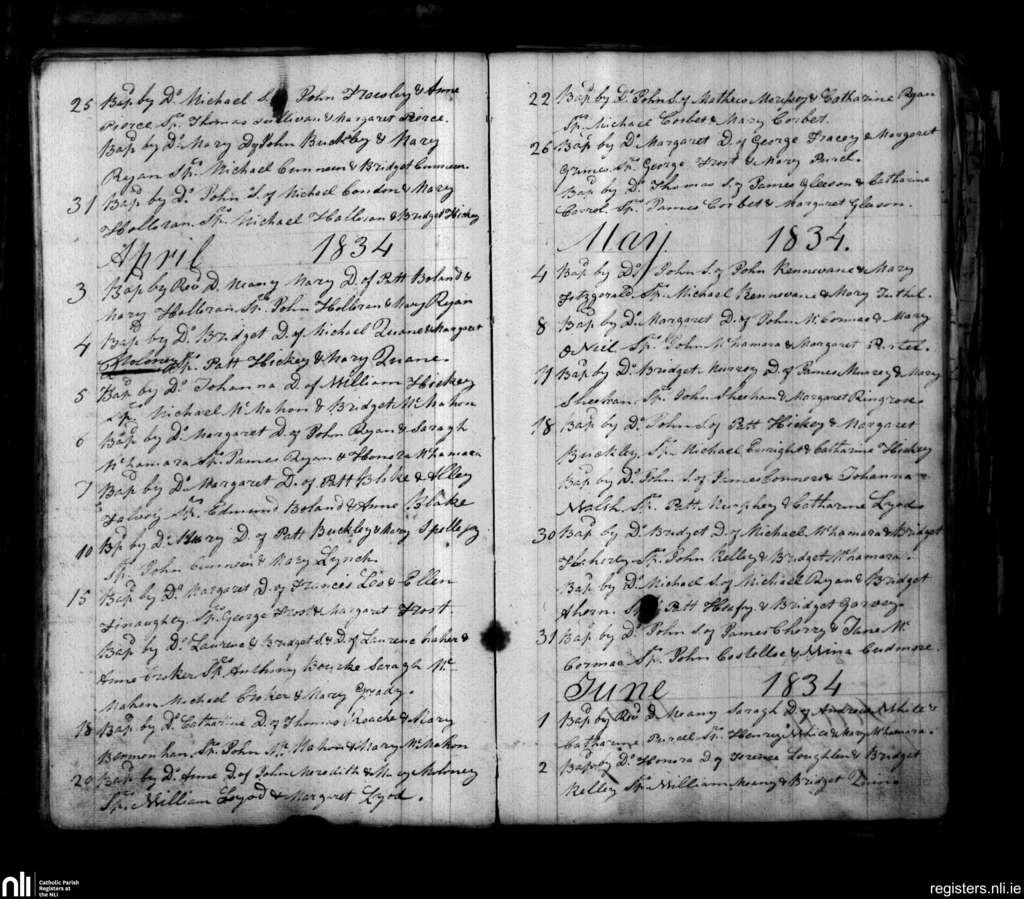 25 Bap by Do Michael S. of John Fraesley & Anne
Pierce Sps Thomas Sullivan & Margaret Pierce.
Bap by Do Mary D of John Buckley & Mary
Ryan Sps Michael Cunneen & Bridget Cunneen
31 Bap by Do John S. of Michael Condon & Mary
Holloran Sps Michael Halloran & Bridget Hickey
April 1834
3 Bap by Revd D. Meany Mary D. of Patt Boland &
Mary Holloran Sps John Holloran & Mary Ryan
4 Bap by Do Bridget D. of Michael Quane & Margaret
Moloney Sps Patt Hickey & Mary Quane.
5 Bap by Do Johanna D. of William Hickey
Sps Michael McMahon & Bridget McMahon
6 Bap by Do Margaret D. of John Ryan & Saragh
McNamara Sps James Ryan & Honora McNamara
7 Bap by Do Margaret D. of Patt Blake & Alley
Falvey Sps Edmund Boland & Anne Blake
10 Bp by Do Mary D. of Patt Buckley & Mary Spellesy
Sps John Cunneen & Mary Lynch.
15 Bap by Do Margaret D. of Francis Leo & Ellen
Finaughty Sps George Frost & Margaret Frost.
Bap by Do Laurence & Bridget S. & D. of Laurence Maher &
Anne Croker Sps Anthony Bourke Saragh Mc
Mahon Michael Croker & Mary Grady.
18 Bap by Do Catharine D. of Thomas Roache & Mary
Sps John McMahon & Mary McMahon
20 Bap by Do Anne D. of John Meredith & Mary Moloney
Sps William Loyod & Margaret Lyod.
22 Bap by Do John S. of Mathew Morissy & Catharine Ryan
Sps Michael Corbet & Mary Corbet.
26 Bap by Do Margaret D. of George Tracey & Margaret
Grimes Sps George Frost & Mary Purcl.
Bap by Do Thomas S. of James Gleeson & Catharine
Carrol Sps James Corbet & Margaret Gleason.
May 1834.
4 Bap by Do John S. of John Rennevane & Mary
Fitzgerald Sps Michael Rennevane & Mary Tuthil.
8 Bap by Do Margaret D. of John McCormac & Mary
O Neil Sps John McNamara & Margaret
11 Bap by Do Bridget Murrey D. of James Murrey & Mary
Sheewan Sps John Sheehan & Margaret Ringrose
18 Bap by Do John S. of Patt Hickey & Margaret
Buckley Sps Michael Enright & Catharine Hickey
Bap by Do John S. of James Connors & Johanna
Walsh Sps Patt Neaphey & Catharine Lyod
30 Bap by Do Bridget D. of Michael McNamara & Bridget
Flaherty Sps John Kelley & Bridget McNamara.
Bap by Do Michael S. of Michael Ryan & Bridget
Ahern Sps Patt Heafy & Bridget Garvey
31 Bap by Do John S. of James Cherry & Jane Mc
Cormac Sps John Costelloe & Nina Cudmore.
June 1834
1 Bap by Revd D. Meany Saragh D. of Andrew White &
Catharine Purcel Sps Henry White & Mary McNamara.
2 Bap by Do Honora D. of Terence Loughlen & Bridget
Kelley Sps William Meany & Bridget Quin
nli Catholic Parish
Registers at
the NLI
registers.nli.ie